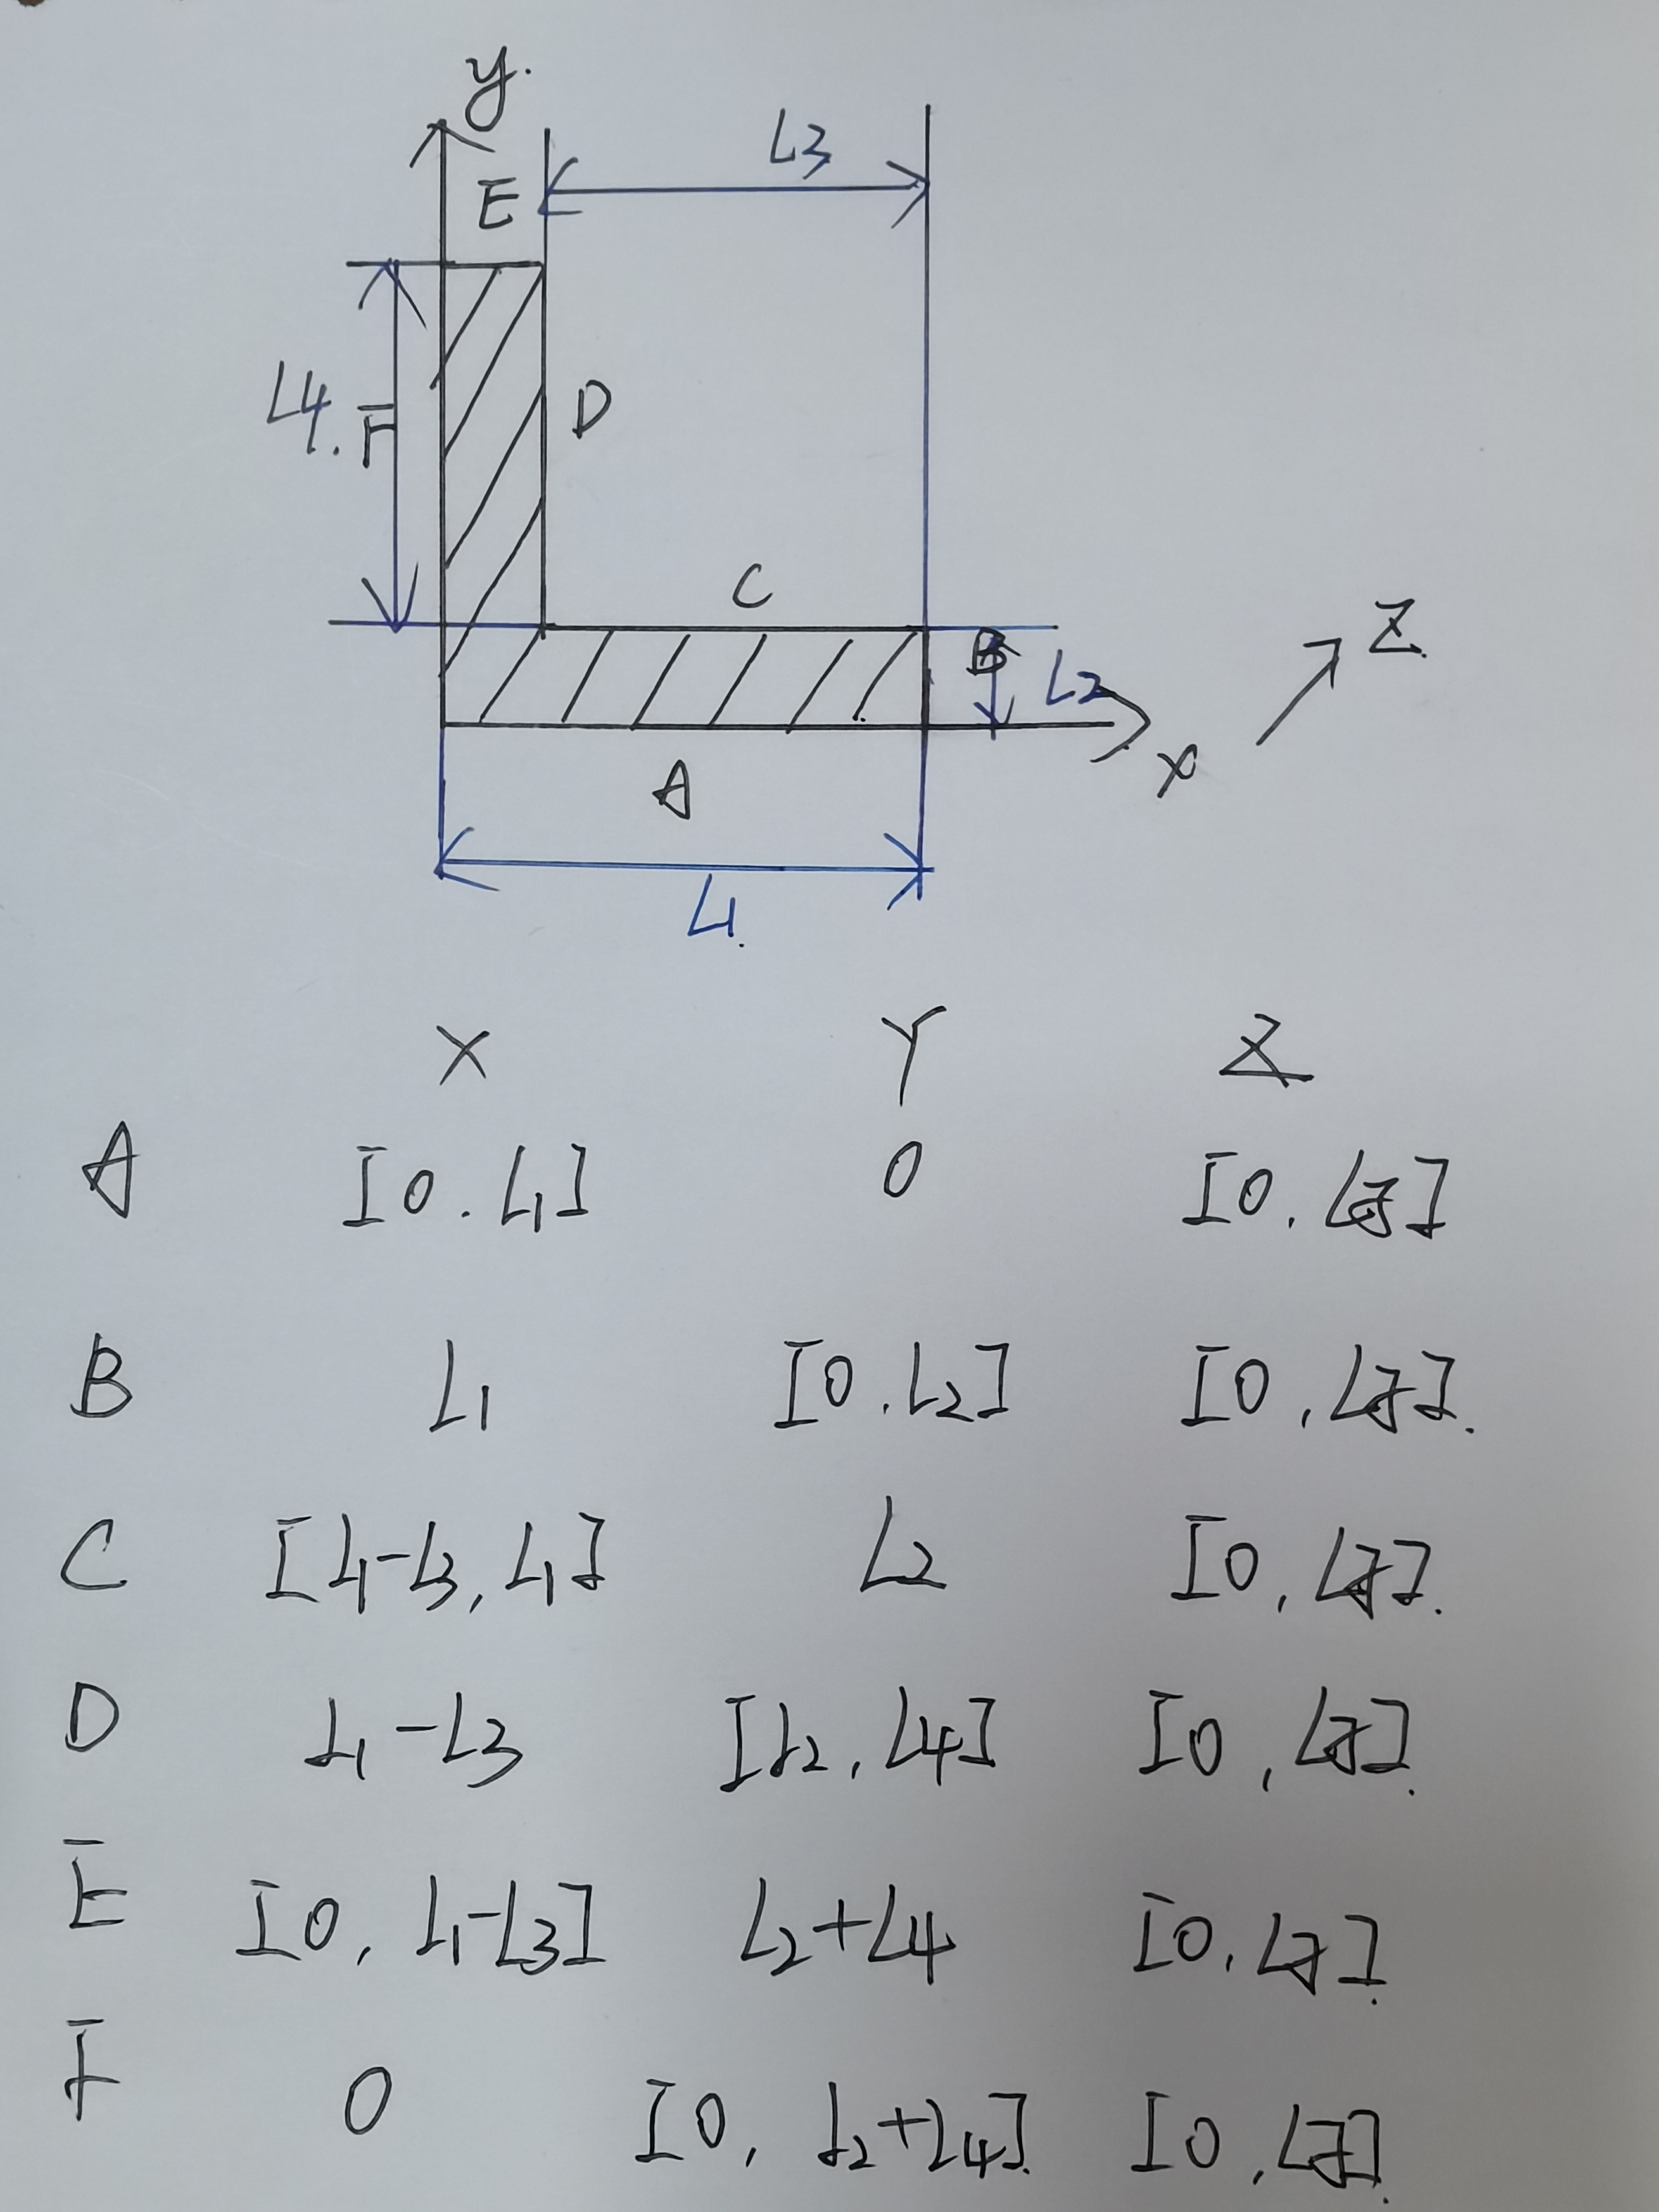 y.
L3
E
L4. F
D
C
Z.
B
L2
x
A
L1.
X Y Z
A [0. L1] 0 [0, Lz]
B L1 [0. L2] [0, Lz].
C [L1-L3, L1] L2 [0, Lz].
D L1-L3 [L2, L4] [0, Lz].
E [0, L1-L3] L2+L4 [0, Lz].
F 0 [0, L2+L4]. [0, Lz].